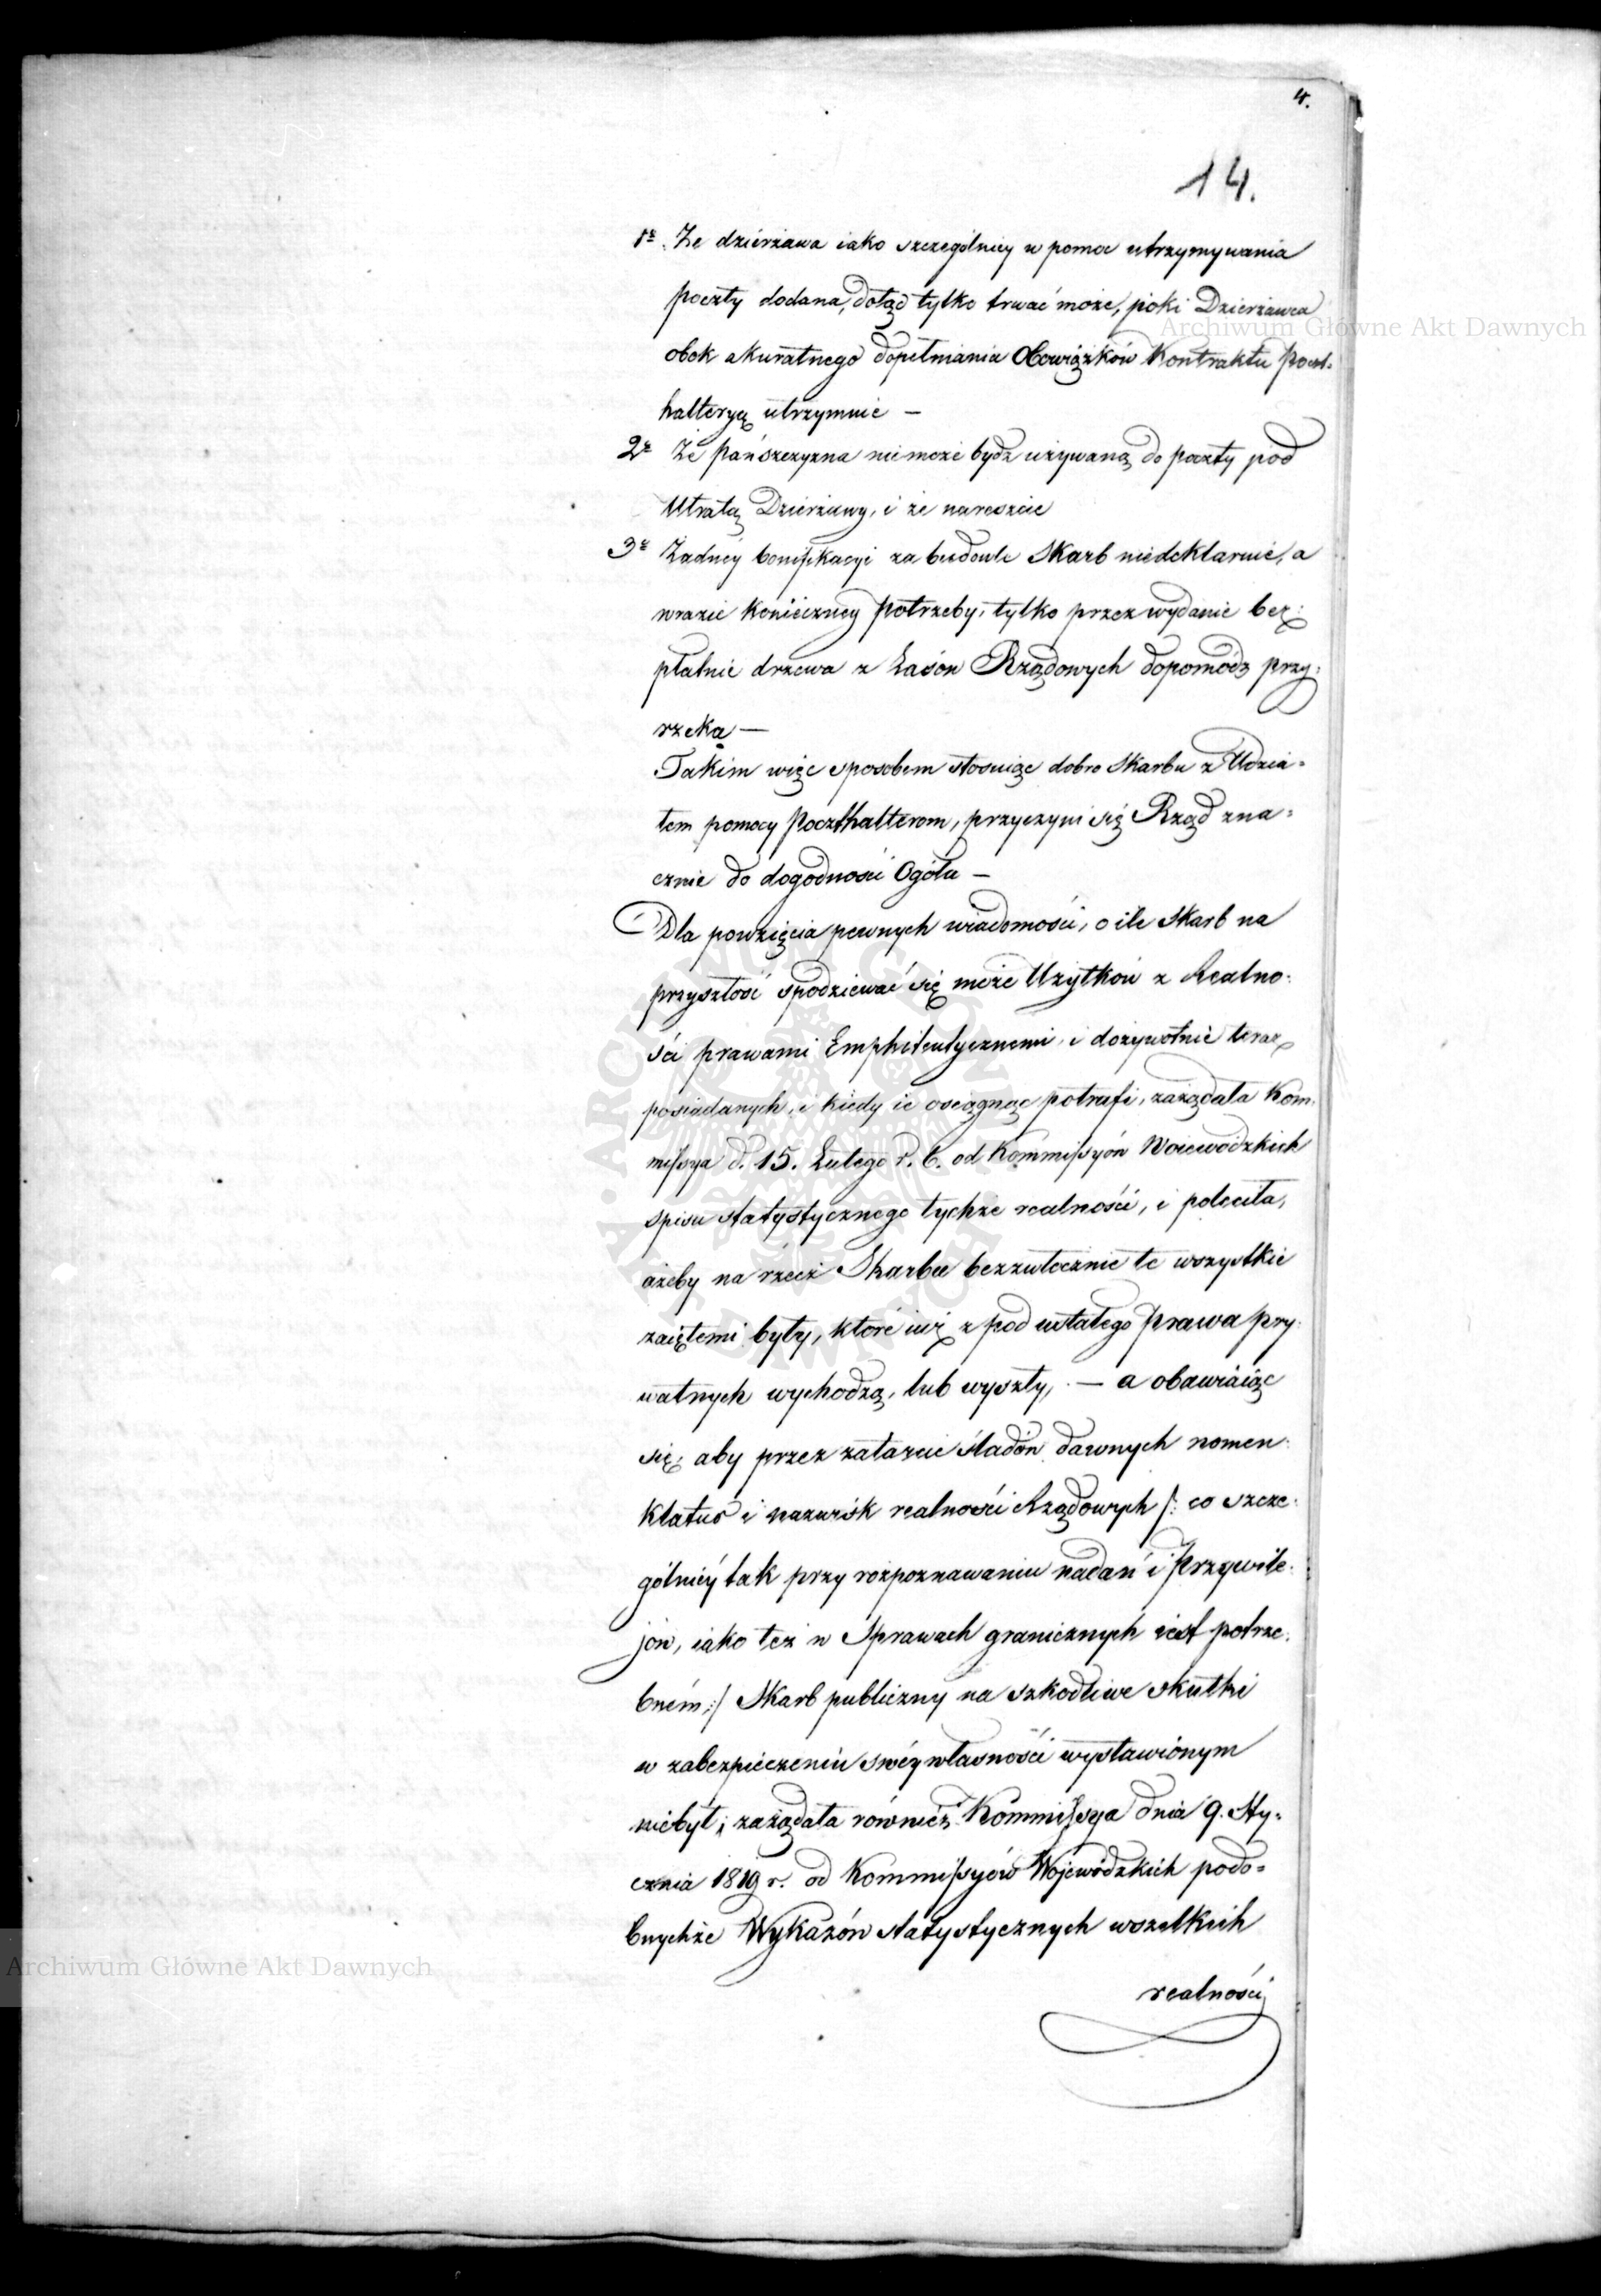 4.
14.
1º. Że dzierżawa iako szczególniey w pomoc utrzymywania
poczty dodana, dotąd tylko trwać może, póki Dzierżawca
obok akuratnego dopełniania Obowiązków Kontraktu poczt-
halteryą utrzymuie —
2º Że pańszczyzna niemoże bydź używaną do poczty pod
Utratą Dzierżawy, i że nareszcie
3º Żadney bonifikacyi za budowle Skarb niedeklaruie, a
wrazie konieczney potrzeby, tylko przez wydanie bez:
płatnie drzewa z Lasów Rządowych dopomódz przy:
rzeka —
Takim więc sposobem stosuiąc dobro Skarbu z Udzia-
łem pomocy poczthalterom, przyczyni się Rząd zna-
cznie do dogodności Ogółu —
Dla powzięcia pewnych wiadomości, o ile Skarb na
przyszłość spodziewać się może Użytków z Realno:
ści prawami Emphiteutycznemi i dożywotnie teraz
posiadanych, i kiedy ie osiągnąć potrafi, zażądała Kom:
missya d. 15. Lutego r. b. od Kommissyów Woiewodzkich
spisu statystycznego tychże realności, i poleciła,
ażeby na rzecz Skarbu bezzwłocznie te wszystkie
zaiętemi były, które iuż z pod ustałego prawa pry:
watnych wychodzą, lub wyszły, — a obawiaiąc
się, aby przez zatarcie śladów dawnych nomen:
klatur i nazwisk realności Rządowych /: co szcze:
gólniéy tak przy rozpoznawaniu nadań i przywile:
jów, iako też w Sprawach granicznych iest potrze:
bném :/ Skarb publiczny na szkodliwe skutki
w zabezpieczeniu swéy własności wystawionym
niebył; zażądała również Kommissya dnia 9. Sty-
cznia 1819 r. od Kommissyów Wojewódzkich podo-
bnychże Wykazów statystycznych wszelkich
realności
Archiwum Główne Akt Dawnych
Archiwum Główne Akt Dawnych